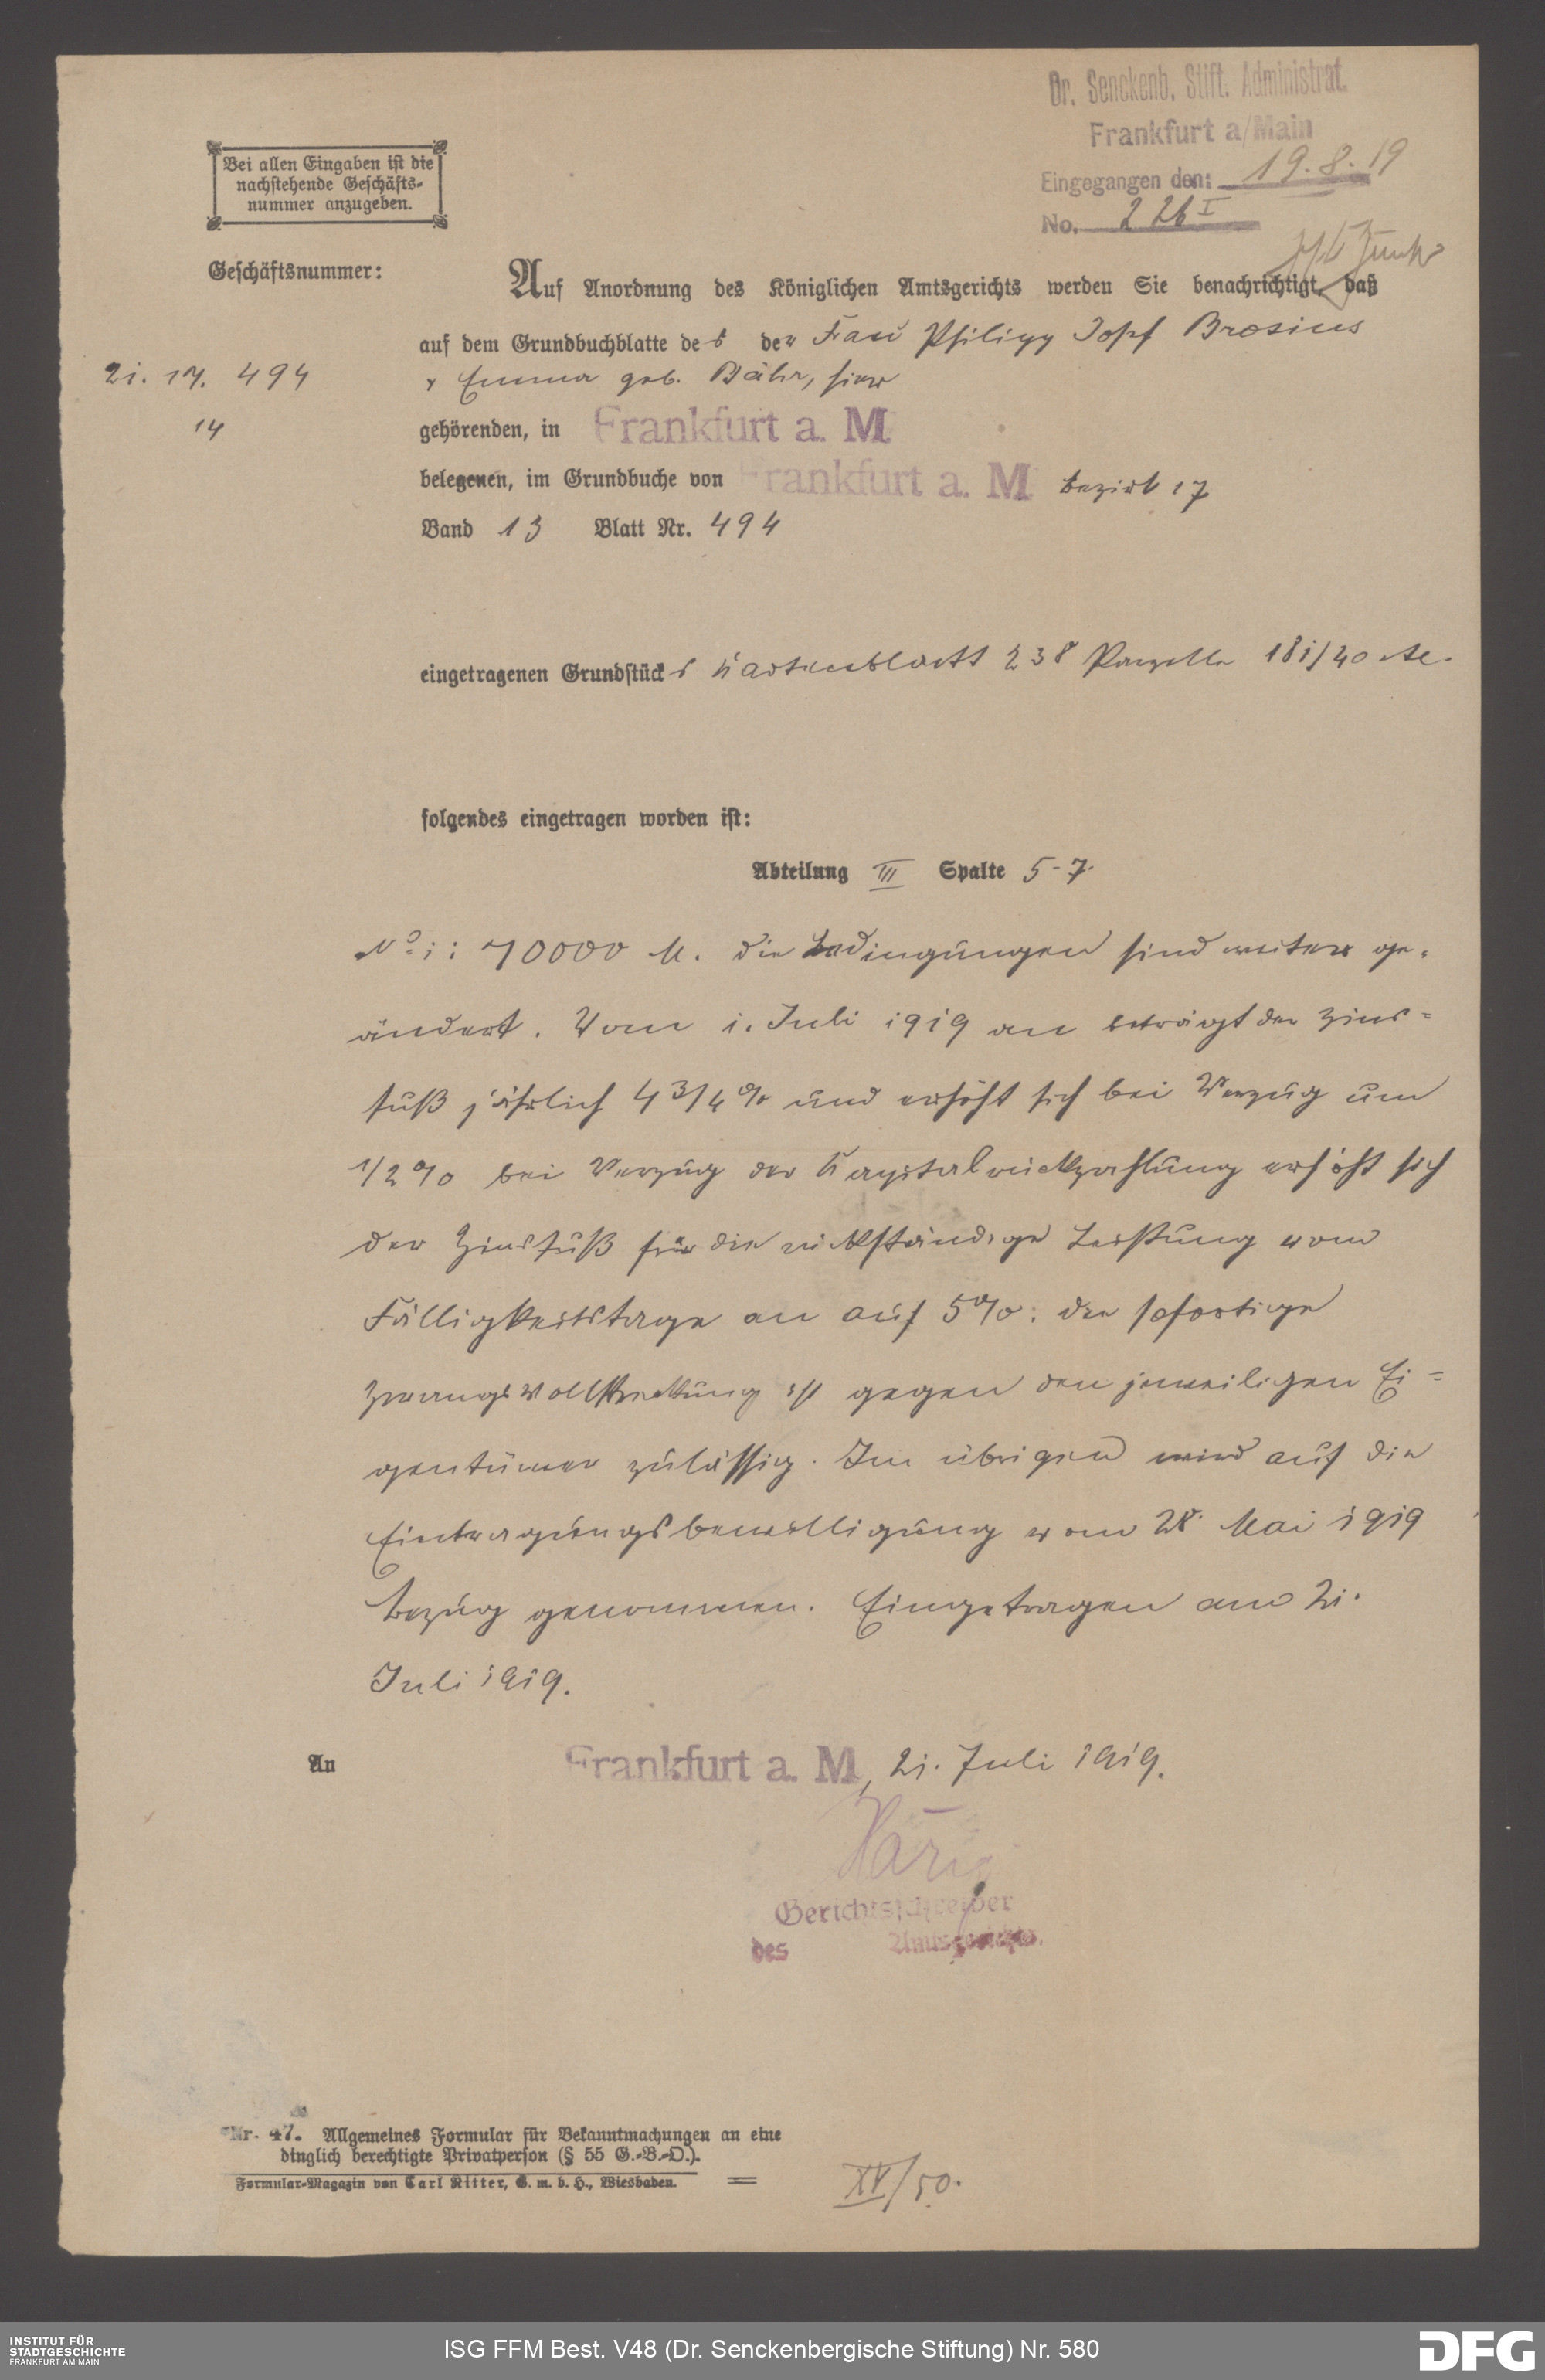 Dr. Senckenb. Stift. Administrat.
Frankfurt a/Main
Eingegangen den: 19.8.19
No. 226 I
Bei allen Eingaben ist die
nachstehende Geschäfts-
nummer anzugeben.
Geschäftsnummer:
21. 17. 494
14
Auf Anordnung des Königlichen Amtsgerichts werden Sie benachrichtigt, daß
auf dem Grundbuchblatte des der Frau Philipp Josef Brosius
Emma geb. Bähr, hier
gehörenden, in Frankfurt a. M
belegenen, im Grundbuche von Frankfurt a. M Bezirk 17
Band 13 Blatt Nr. 494
eingetragenen Grundstücks Kartenblatt 238 Parzelle 181/40 etc.
folgendes eingetragen worden ist:
Abteilung III Spalte 5-7
No 1: 70000 M. die Bedingungen sind weiter ge-
ändert. Vom 1. Juli 1919 an beträgt der Zins-
fuß jährlich 4 3/4 % und erhöht sich bei Verzug um
1/2 % bei Verzug der Kapitalrückzahlung erhöht sich
der Zinsfuß für die rückständige Leistung vom
Fälligkeitstage an auf 5 %: die sofortige
Zwangsvollstreckung ist gegen den jeweiligen Ei-
gentümer zulässig. Im übrigen wird auf die
Eintragungsbewilligung vom 28. Mai 1919
Bezug genommen. Eingetragen am 21.
Juli 1919.
An
Frankfurt a. M, 21. Juli 1919.
Gerichtsschreiber
des Amtsgerichts.
Nr. 47. Allgemeines Formular für Bekanntmachungen an eine
dinglich berechtigte Privatperson (§ 55 G.-B.-O.).
Formular-Magazin von Carl Ritter, G. m. b. H., Wiesbaden.
XV/50.
INSTITUT FÜR
STADTGESCHICHTE
FRANKFURT AM MAIN
ISG FFM Best. V48 (Dr. Senckenbergische Stiftung) Nr. 580
DFG